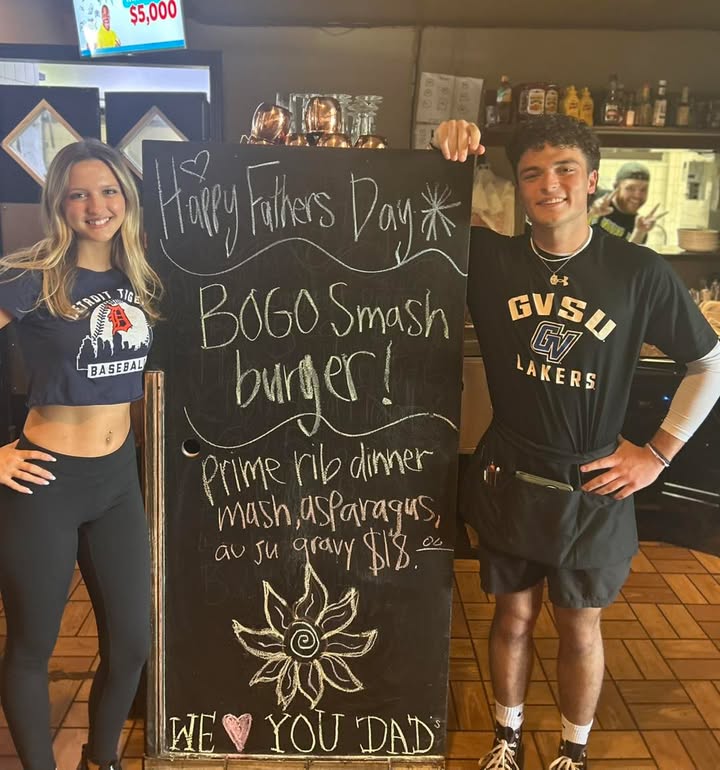 $5,000
Happy Fathers Day
BOGO Smash
burger!
prime rib dinner
mash, asparagus,
au ju gravy $18.00
WE YOU DAD's
DETROIT TIGE
BASEBALL
GVSU
GV
LAKERS